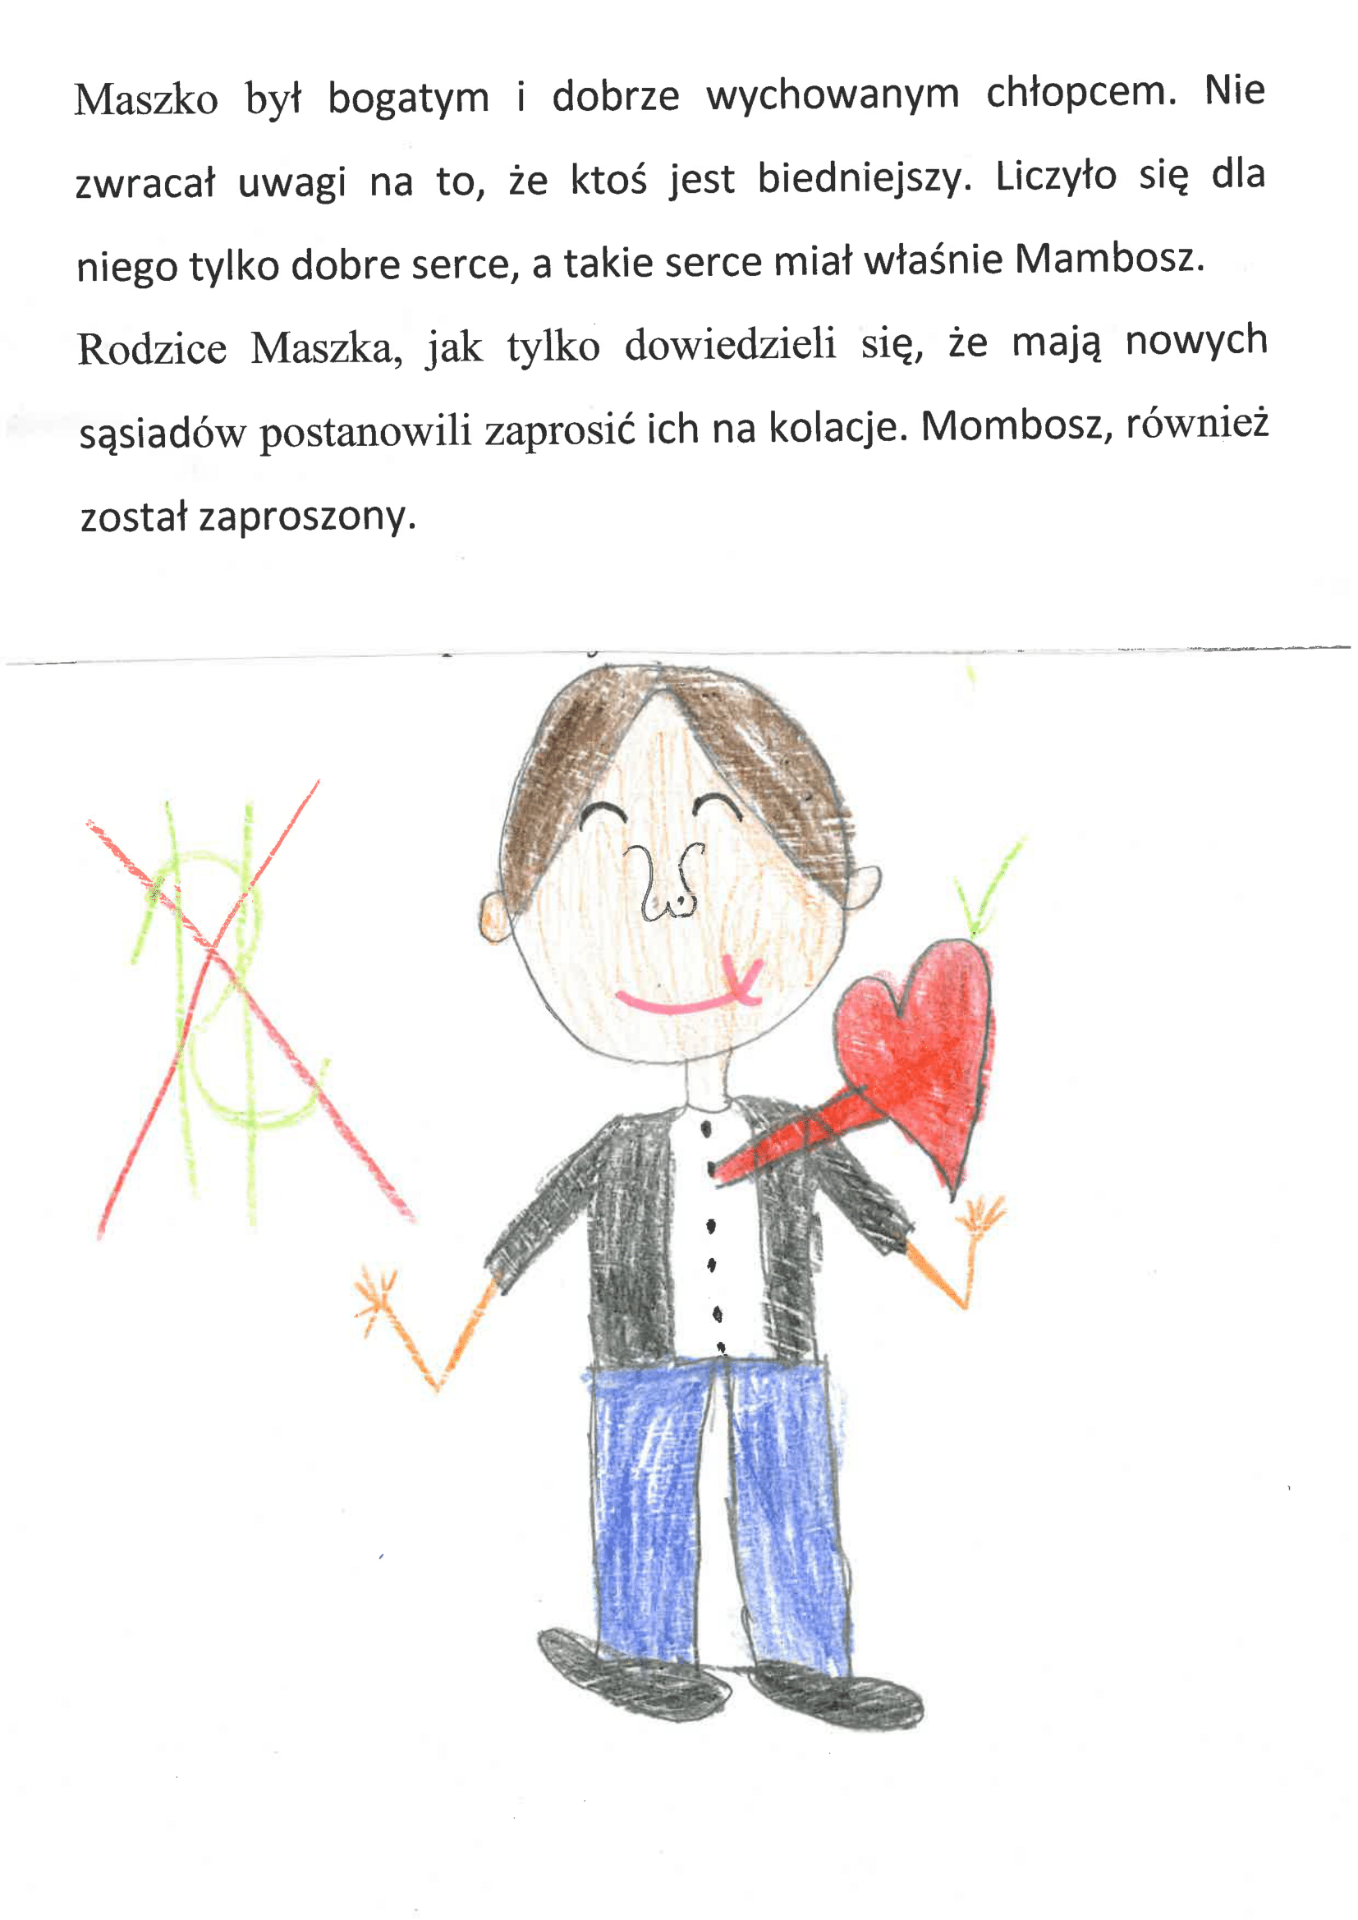 Maszko był bogatym i dobrze wychowanym chłopcem. Nie
zwracał uwagi na to, że ktoś jest biedniejszy. Liczyło się dla
niego tylko dobre serce, a takie serce miał właśnie Mambosz.
Rodzice Maszka, jak tylko dowiedzieli się, że mają nowych
sąsiadów postanowili zaprosić ich na kolacje. Mombosz, również
został zaproszony.